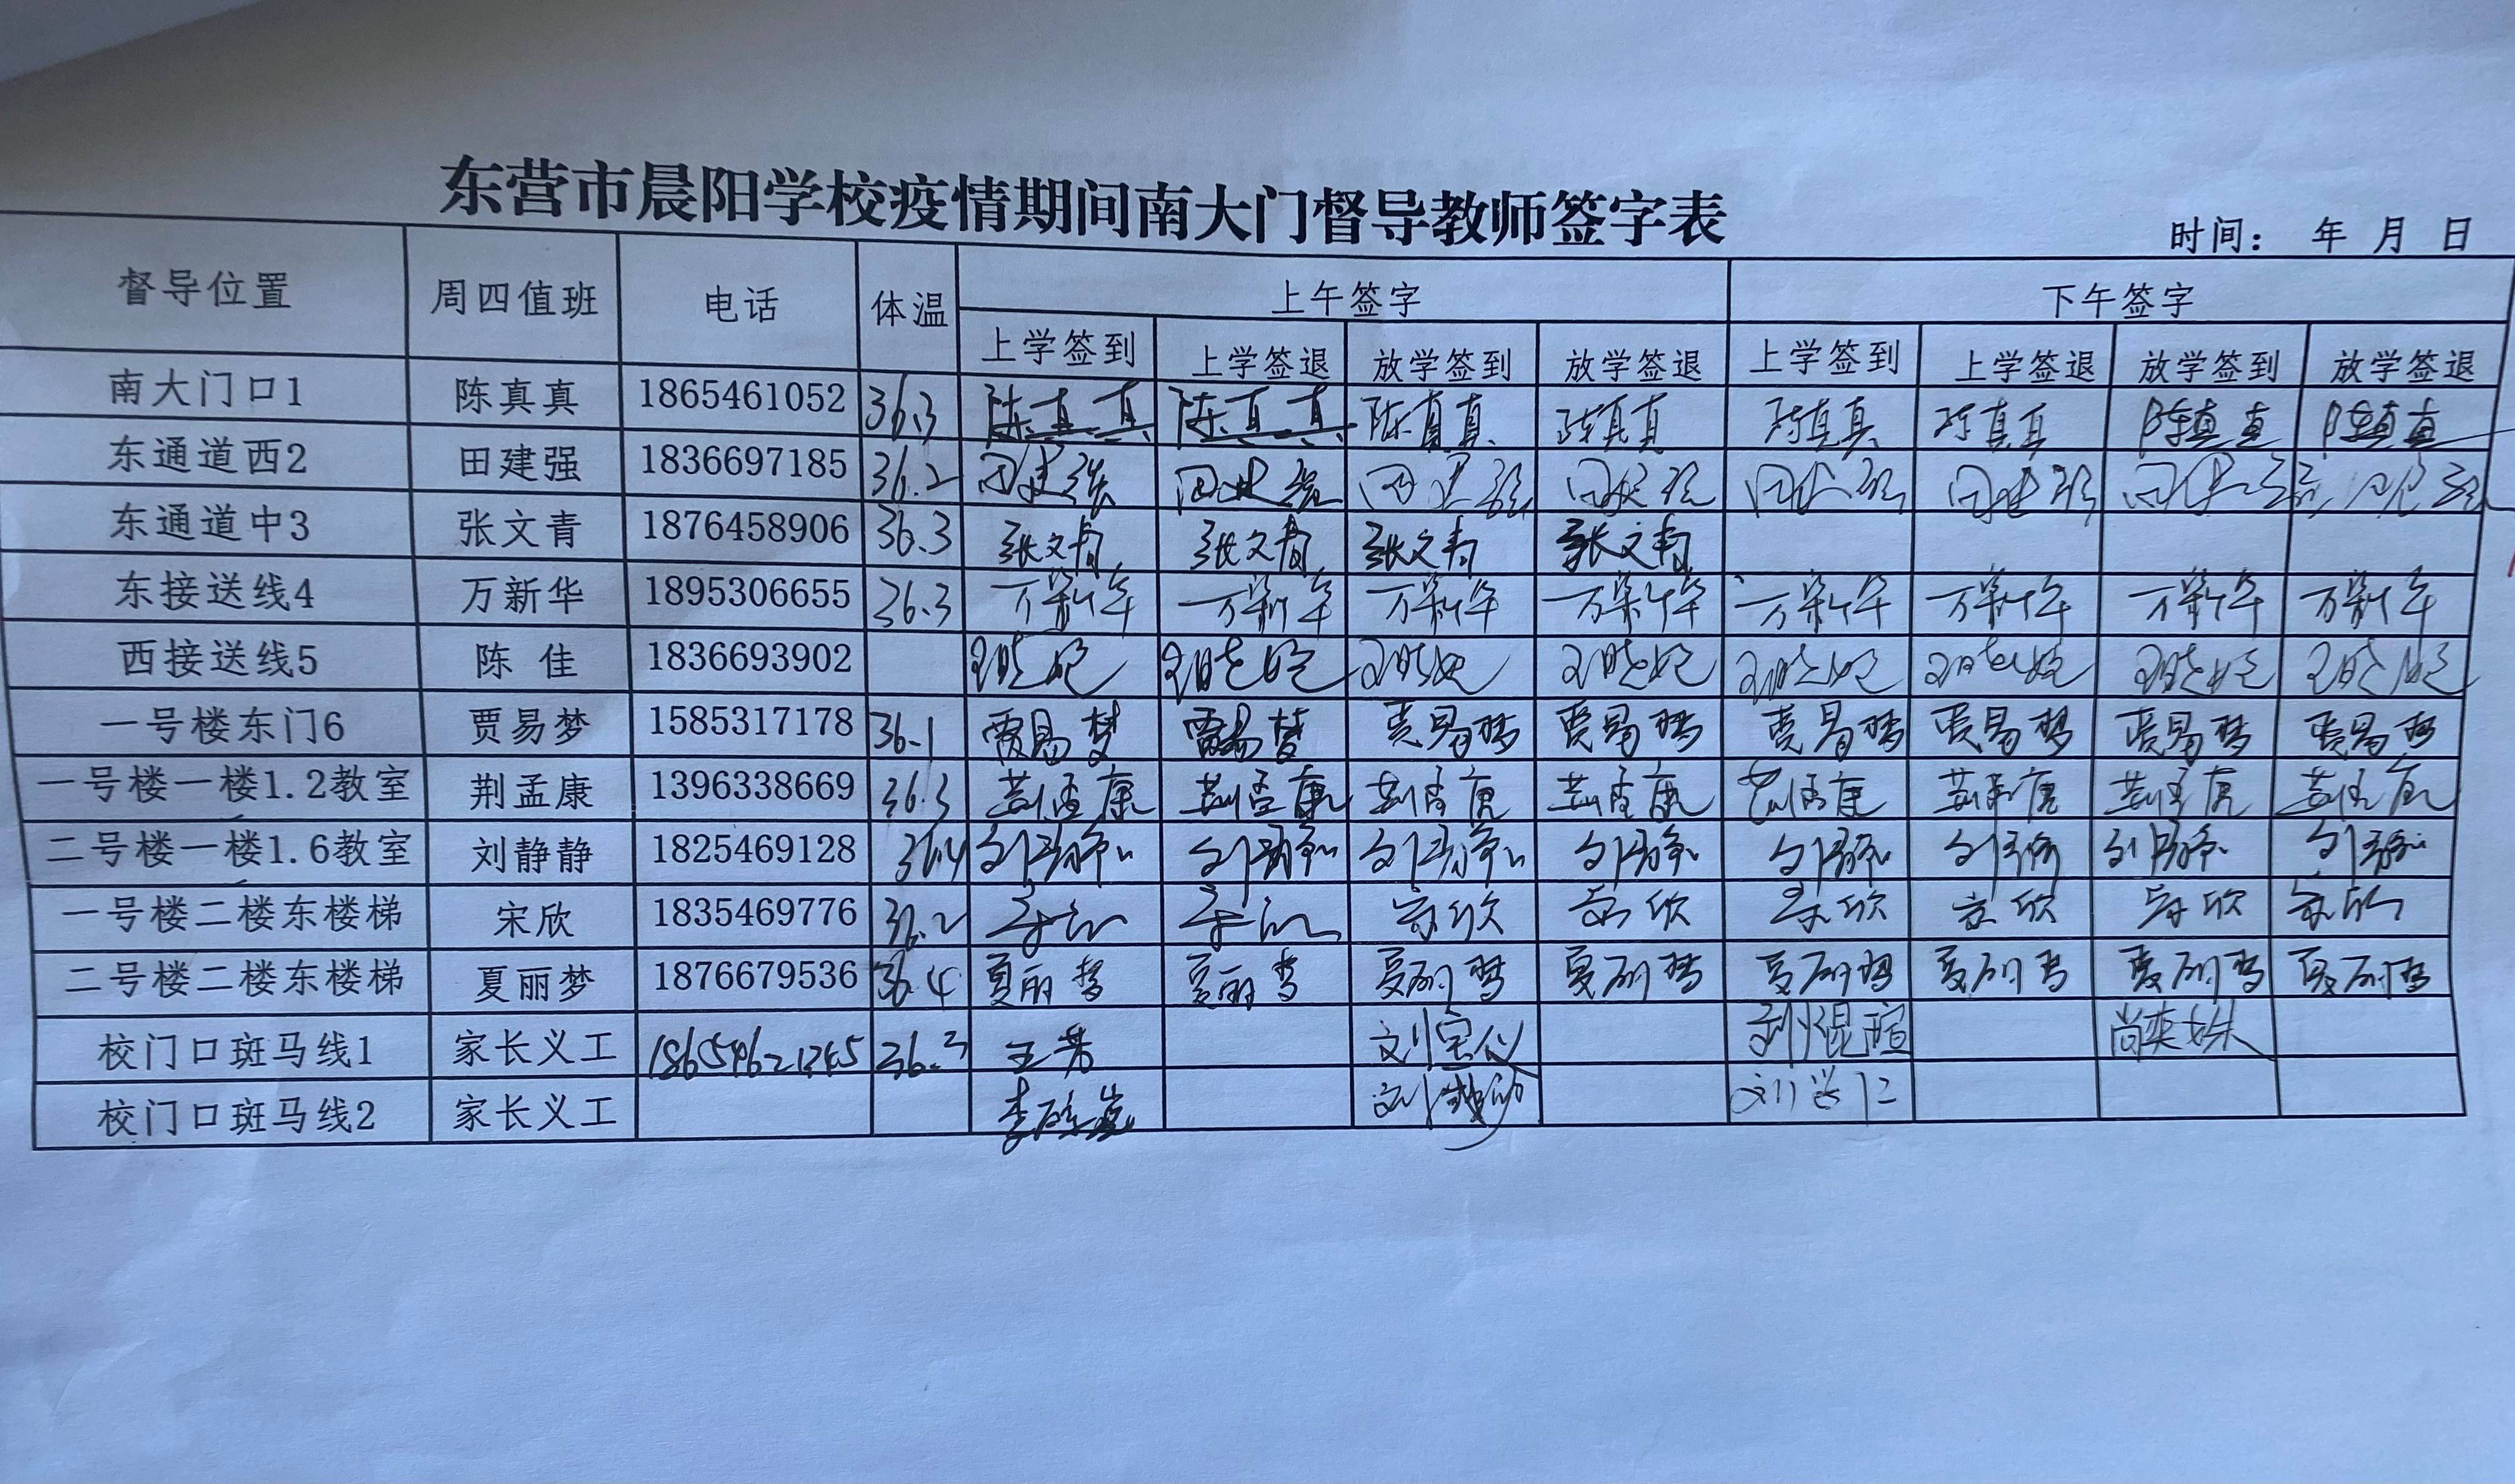 东营市晨阳学校疫情期间南大门督导教师签字表
时间： 年 月 日
督导位置 周四值班 电话 体温 上午签字 下午签字
上学签到 上学签退 放学签到 放学签退 上学签到 上学签退 放学签到 放学签退
南大门口1 陈真真 1865461052 36.3 陈真真 陈真真 陈真真 陈真真 陈真真 陈真真 陈真真 陈真真
东通道西2 田建强 1836697185 36.2 田建强 田建强 田建强 田建强 田建强 田建强 田建强 田建强
东通道中3 张文青 1876458906 36.3 张文青 张文青 张文青 张文青
东接送线4 万新华 1895306655 36.3 万新华 万新华 万新华 万新华 万新华 万新华 万新华 万新华
西接送线5 陈 佳 1836693902
一号楼东门6 贾易梦 1585317178 36.1 贾易梦 贾易梦 贾易梦 贾易梦 贾易梦 贾易梦 贾易梦 贾易梦
一号楼一楼1.2教室 荆孟康 1396338669 36.3 荆孟康 荆孟康 荆孟康 荆孟康 荆孟康 荆孟康 荆孟康 荆孟康
二号楼一楼1.6教室 刘静静 1825469128 36.4 刘静静 刘静静 刘静静 刘静静 刘静静 刘静静 刘静静 刘静静
一号楼二楼东楼梯 宋欣 1835469776 36.2 宋欣 宋欣 宋欣 宋欣 宋欣 宋欣 宋欣 宋欣
二号楼二楼东楼梯 夏丽梦 1876679536 36.4 夏丽梦 夏丽梦 夏丽梦 夏丽梦 夏丽梦 夏丽梦 夏丽梦 夏丽梦
校门口斑马线1 家长义工 18654621245 36.3 王芳 刘宝仪 尚奕姝
校门口斑马线2 家长义工